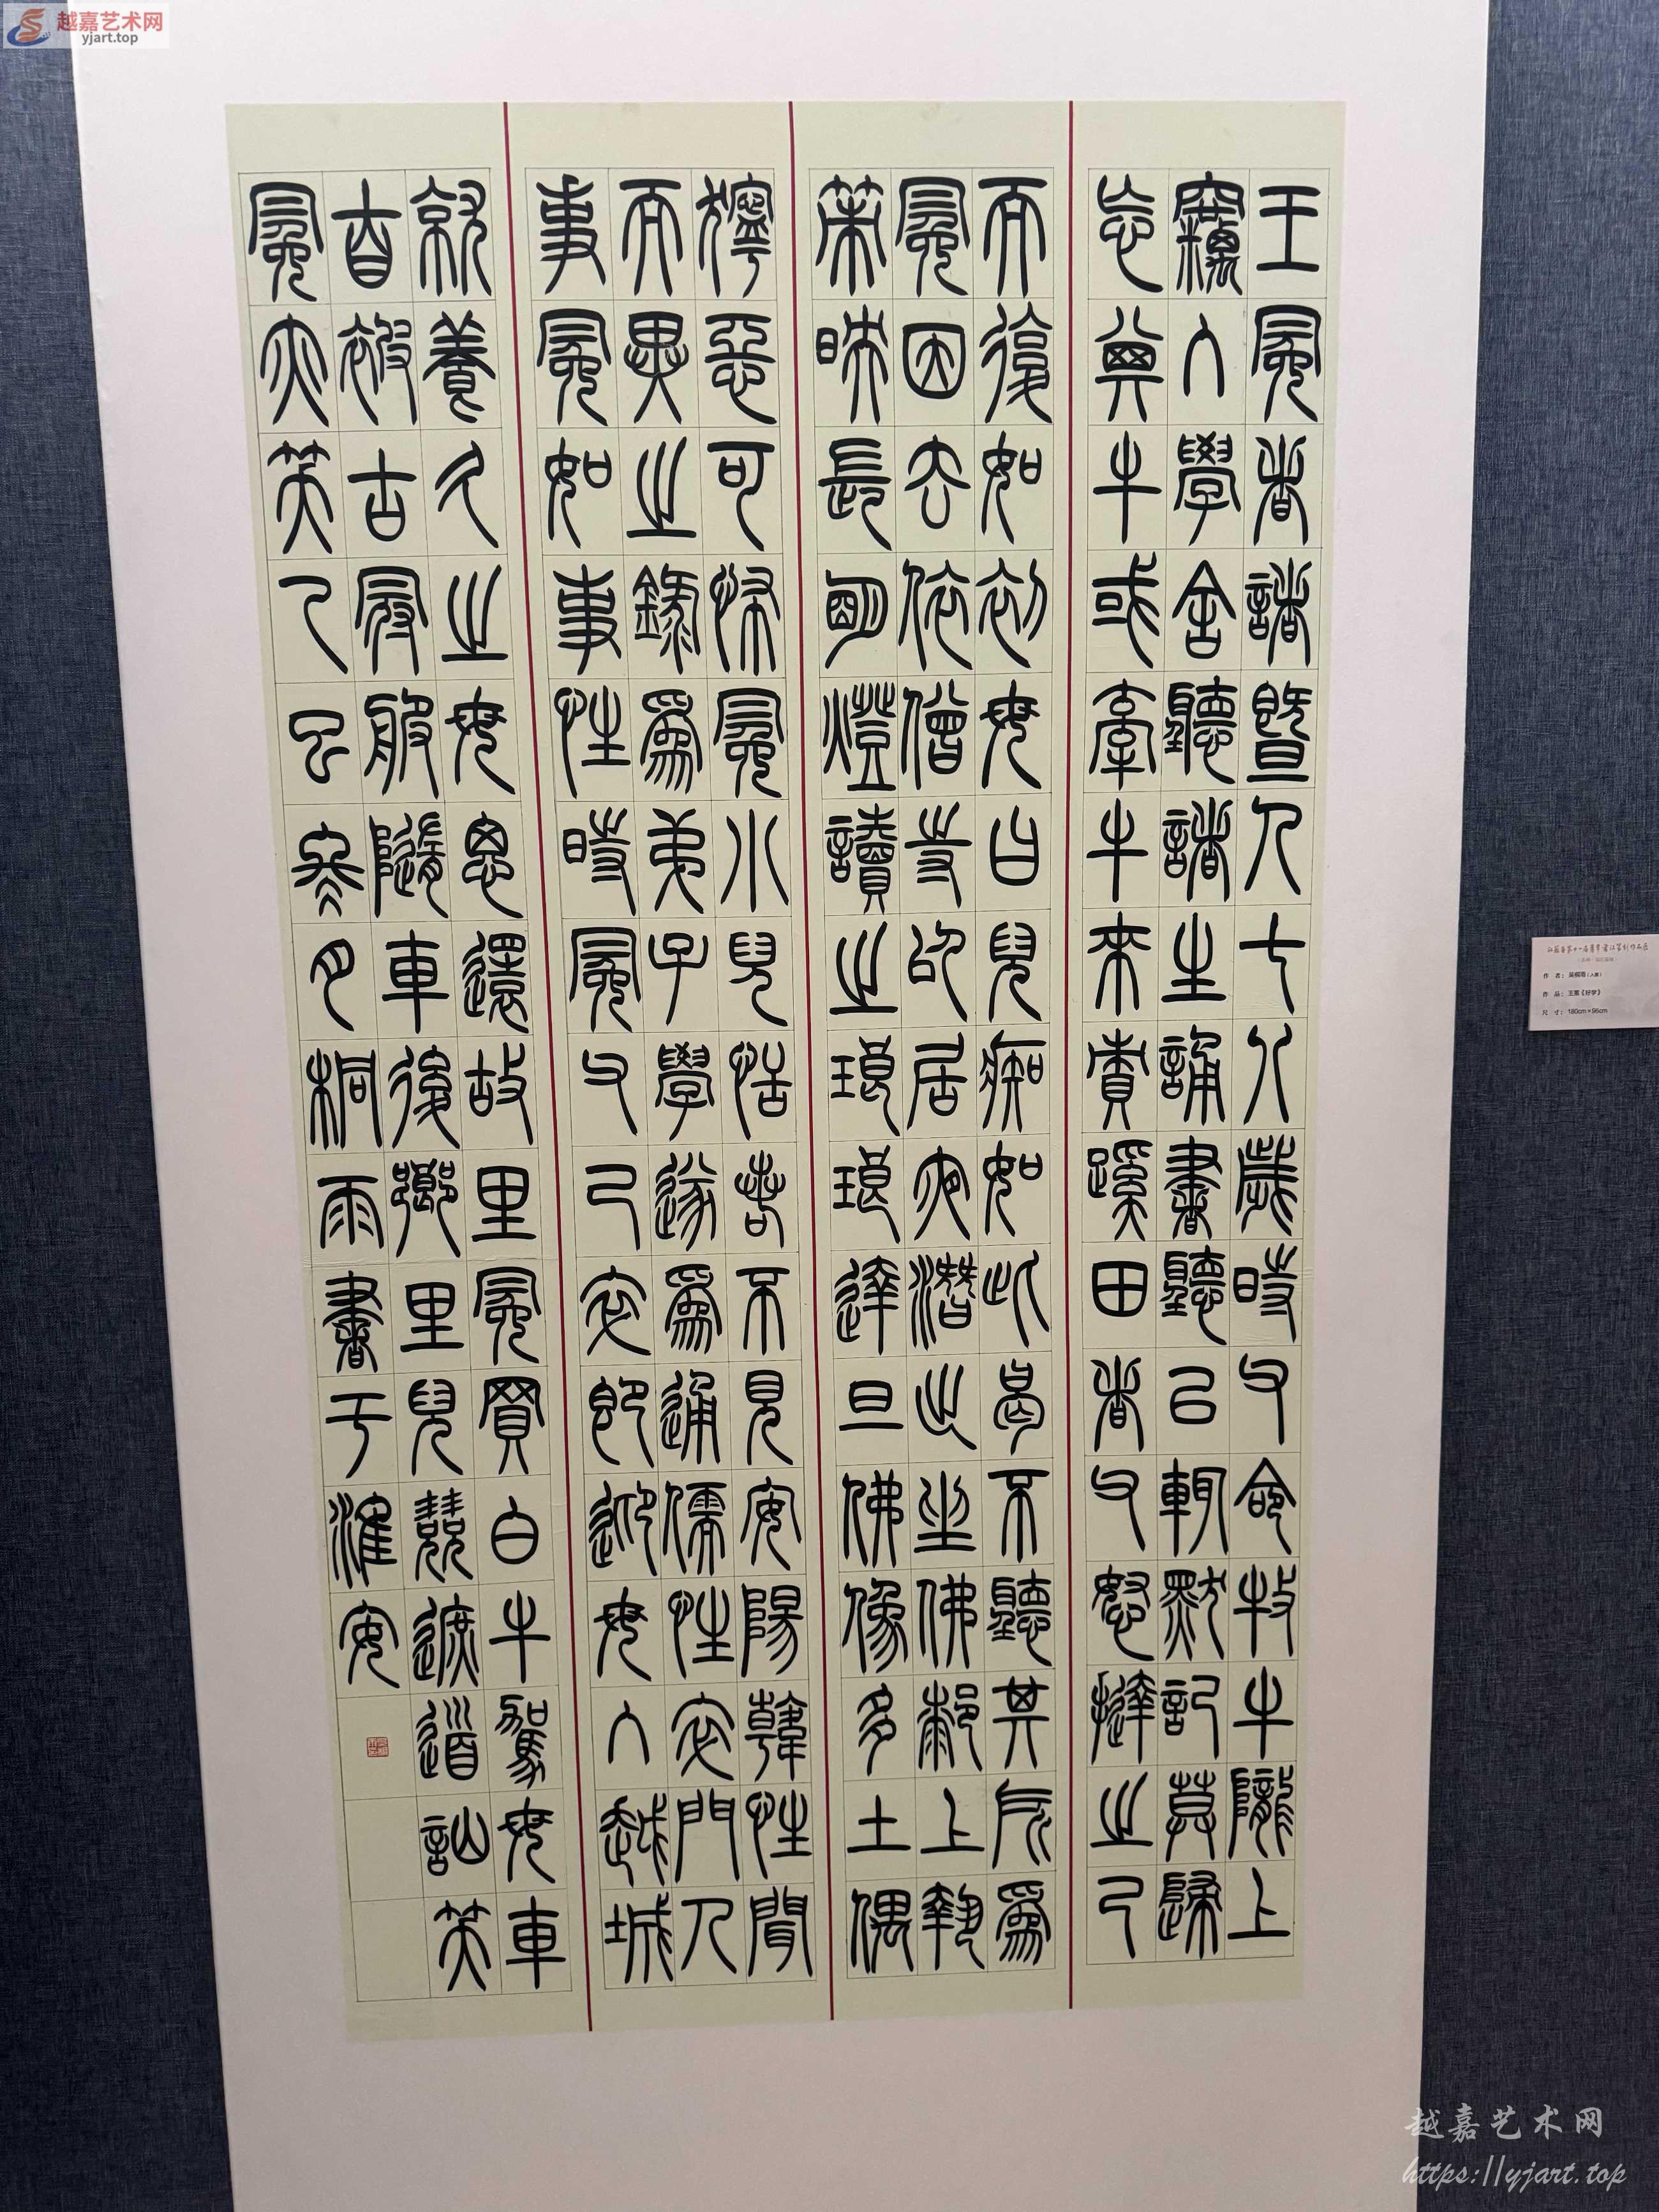 越嘉艺术网
yjart.top
王冕者諸暨人七八歲時父命牧牛隴上
竊入學舍聽諸生誦書聽已輒默記莫歸
忘其牛或牽牛來責蹊田者父怒撻之已
而復如初母曰兒痴如此曷不聽其所為
冕因去依僧寺以居夜潛出坐佛膝上執
策映長明燈讀之琅琅達旦佛像多土偶
獰惡可怖冕小兒恬若不見安陽韓性聞
而異之錄為弟子學遂為通儒性卒門人
事冕如事性時冕父已卒即迎母入越城
就養久之母思還故里冕買白牛駕母車
自被古冠服隨車後鄉里兒競遮道訕笑
冕亦笑乙巳寒月桐雨書于淮安
江苏省第十一届青年书法篆刻作品展
作 者：吴桐雨（入展）
作 品：王冕《好学》
尺 寸：180cm×96cm
越嘉艺术网
https://yjart.top